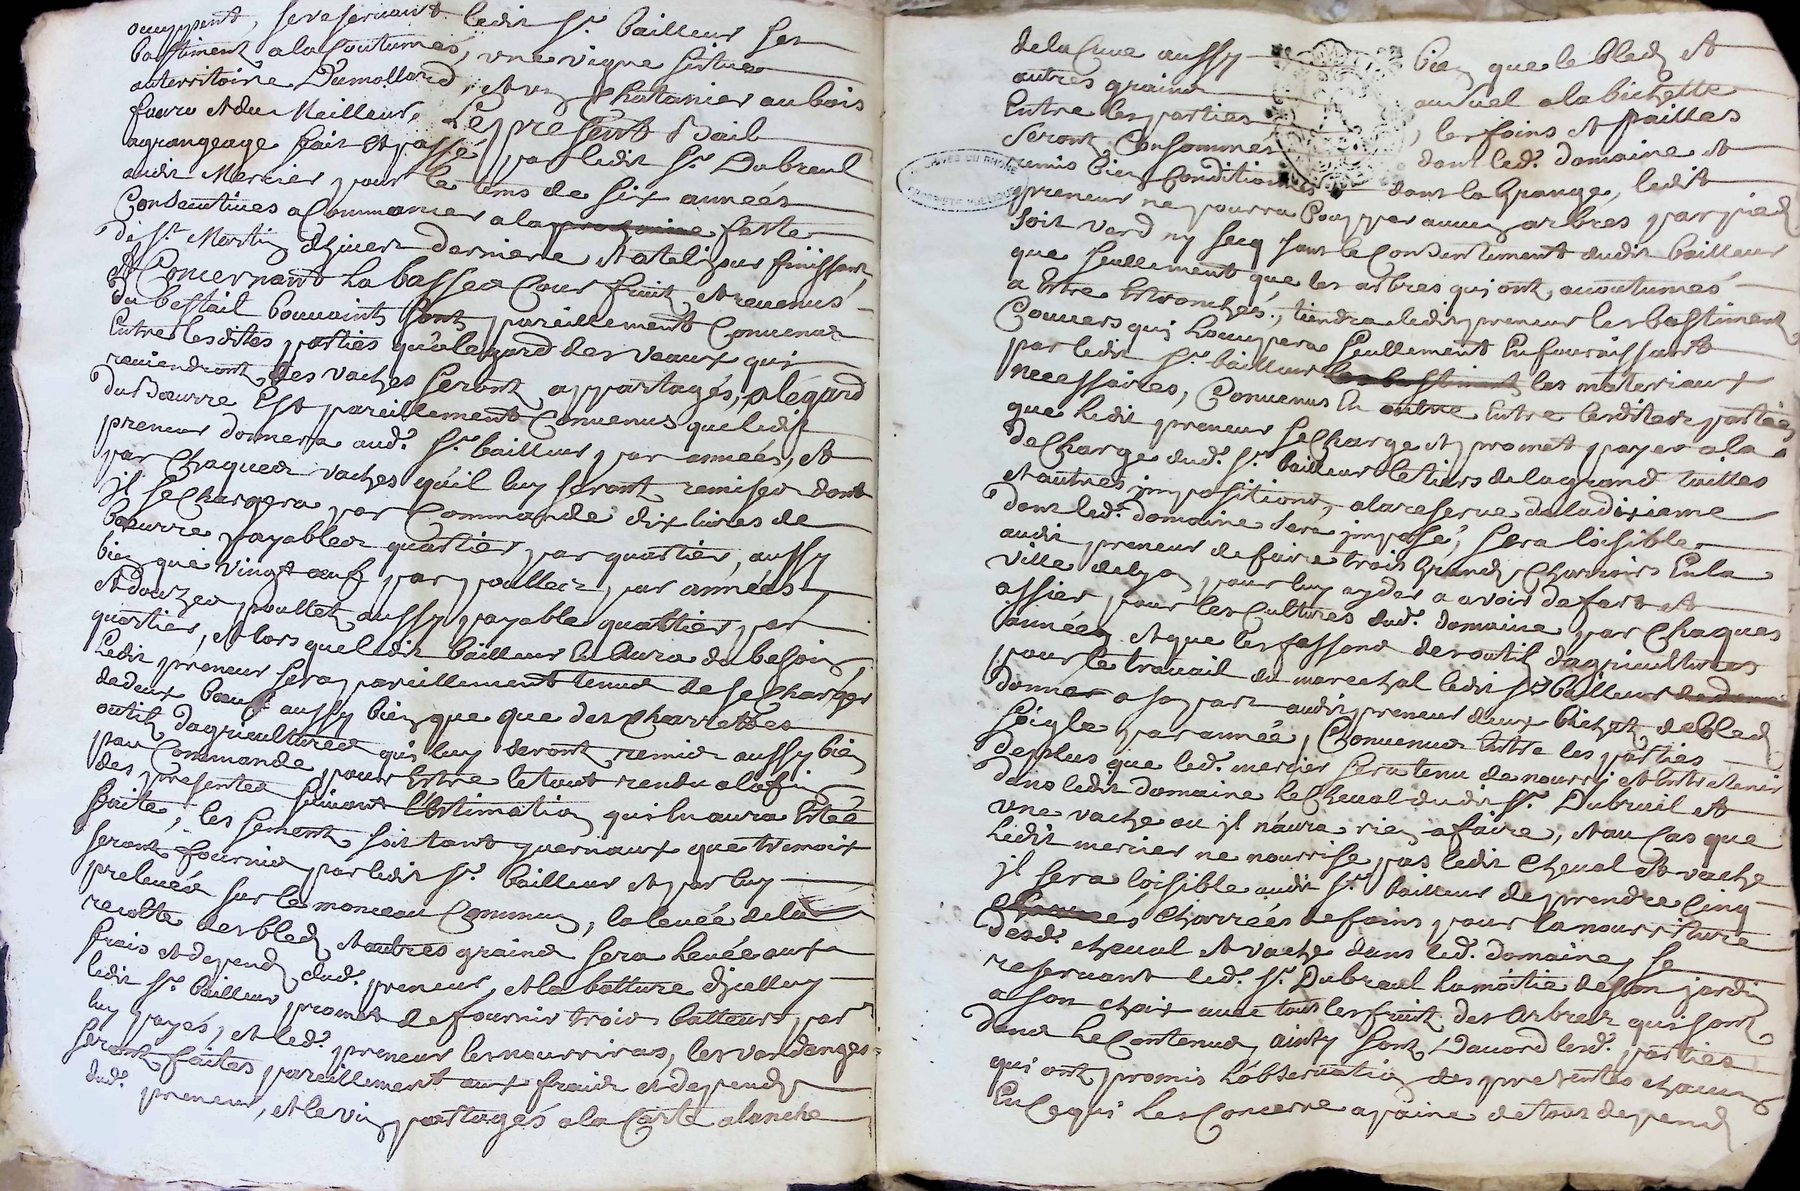 occuppent, se reservant ledit Sr. bailleur ses
bastiment a la Coutumes, une vigne situee
au territoire Dumollard, et un Chatanier au bois
favre et du Meilleur, Le present Bail
agrangeage fait et passé par ledit Sr. Dubreul
audit Mercier pour le tems de six années
Consecutives a Commancer a la prochaine feste
de St. Martin d'hivert derniere et a tel jour finissant,
Et Concernant La basse Cour fruit et revenus
du bestail bouvaint sont pareillement Convenus
Entre lesdites parties qu'a legard des veaux qui
reviendront des vaches seront appartagés, a légard
du Bœurre Est pareillement Convenus que ledit
preneur donnera aud. Sr. bailleur par années, et
par Chaques vaches qu'il luy seront remises dont
jl se Chargera par Commande dix livres de
bœurre payables quartier par quartier, aussy
bien que vingt œufs par poulles par années,
et douzes poulets aussy payable quartier par
quartier, et lors que ledit bailleur en aura de besoin,
Ledit preneur sera pareillement tenus de se Charger
de deux bœufs aussy bien que que des Charrettes
outils d'agricultures qui luy seront remis aussy bien
par Commande pour Estre le tout rendu a la fin
des presentes suivant L'estimation qui en aura Estée
faite, les sements soit tant yvernaux que tremois
seront fournis par ledit Sr. bailleur et par luy
prelevés sur le monceau Commun, la levée de la
recolte des bleds et autres grains sera Levée aux
frais et depends dud. preneur, et la batture d'jcelluy
ledit Sr. bailleur promet de fournir trois batteurs par
luy payés, et led. preneur les nourriras, les vandanges
seront faites pareillement aux frais et depends
dud. preneur, et le vin partagés a la Carte alanche
de la Cuve aussy bien que le bled et
autres grains au suel a la bichette
Entre les parties, les foins et pailles
seront Consommés dans led. domaine et
remis bien Conditionnés dans la Grange, ledit
preneur ne pourra Coupper aucun arbres par pied
soit verd ny secq sans le Consentement dudit bailleur
que seullement que les arbres qui ont accoutumés
a Estre Estronchés, tiendra ledit preneur les bastiment
Couvers qui L'occupera seullement En fournissant
par ledit Sr. bailleur les bastiment les materiaux
necessaires, Convenus En outre Entre lesdites parties
que Ledit preneur se Charge et promet payer a la
deCharge dud. Sr. bailleur le tiers de la grand tailles
et autres jmpositions, a la reserve de la dixiame
dont led. domaine sera jmposé, sera loisible
audit preneur de faire trois Grands Charrois En la
ville de Lyon pour luy ayder a avoir de fert et
assier pour les Cultures dud. domaine par Chaques
années. et que les fassons des outils d'agricultures
pour le travail du marechal ledit Sr. bailleur
donner a sa part audit preneur deux bichets de bled
seigle par année, Convenus Entre les parties
de plus que led. mercier sera tenu de nourrij et Entretenir
dans ledit domaine le Cheval dudit Sr. Dubreuil et
une vache ou jl n'aura rien a faire, et au Cas que
Ledit mercier ne nourrise pas ledit Cheval et vache
jl sera loisible audit Sr. bailleur de prendre Cinq
Charrées de foins pour la nourriture
desd. cheval et vache dans led. domaine, se
reservant led. Sr. Dubreul la moitie de son jardin
a son choix avec tous les fruit des Arbres qui sont
dans le Contenus, ainsy sont D'acord lesd. parties
qui ont promis L'observation des presentes chacun
En Ce qui Les Concerne a paine de tous depends